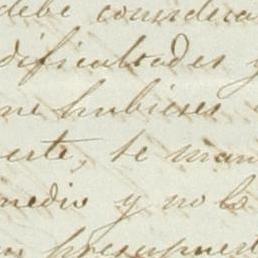 debe considera
dificultades y
ne hubieses
erte, te man
medio y no lo
presupuest